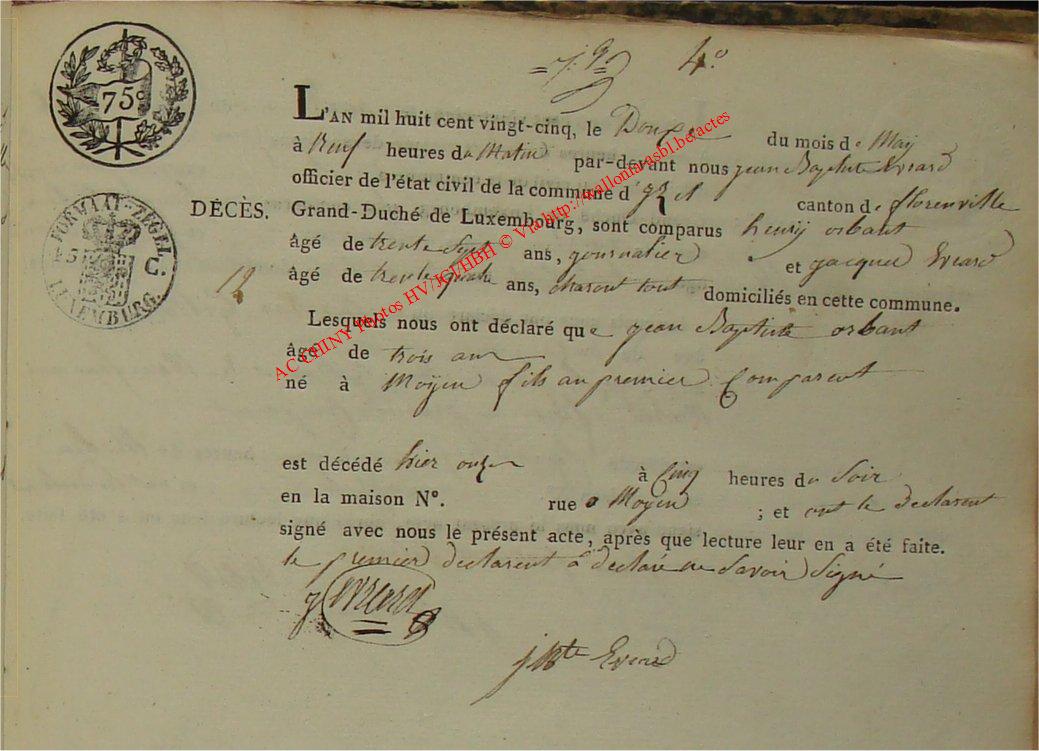 4º
75 c
L'AN mil huit cent vingt-cinq, le Douze du mois de Maÿ
à Neuf heures du Matin par-devant nous jean Baptiste Evrard
officier de l'état civil de la commune d' canton de florenville
DÉCÈS.
Grand-Duché de Luxembourg, sont comparus henrÿ orbant
âgé de trente Sept ans, journalier et jacques Evrard
âgé de trente quatre ans, charont tout domiciliés en cette commune.
FORMAAT-ZEGEL
LUXEMBURG.
Lesquels nous ont déclaré que jean Baptiste orbant
âgé de trois ans
né à Moÿen fils au premier Comparent
est décédé hier onze à Cinq heures du Soir
en la maison Nº. rue a Moÿen ; et ont le declarent
signé avec nous le présent acte, après que lecture leur en a été faite.
le premier declarent à declaré ne Savoir Signé
j evrard
j Bte Evrard
AC CHINY Photos HV/JGI/HBH © Via http://walloniafamasbl.be/actes